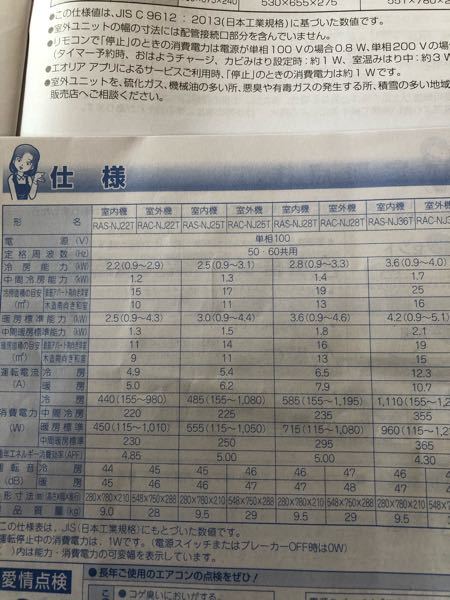 530×655×275
●この仕様値は、JIS C 9612：2013(日本工業規格)に基づいた数値です。
●室外ユニットの幅の寸法には配管接続口部分を含んでいません。
●リモコンで「停止」のときの消費電力は電源が単相100 Vの場合0.8 W、単相200 Vの場
(タイマー予約時、おはようチャージ、カビみはり設定時：約1 W、室温みはり中：約3 W
●エオリア アプリによるサービスご利用時、「停止」のときの消費電力は約1 Wです。
●室外ユニットを、硫化ガス、機械油の多い所、悪臭や有毒ガスの発生する所、積雪の多い地域
販売店へご相談ください。
仕様
形 名 室内機 室外機 室内機 室外機 室内機 室外機 室内機 室外機
RAS-NJ22T RAC-NJ22T RAS-NJ25T RAC-NJ25T RAS-NJ28T RAC-NJ28T RAS-NJ36T
電 源(V) 単相100
定格周波数(Hz) 50・60共用
冷房能力(kW) 2.2(0.9~2.9) 2.5(0.9~3.1) 2.8(0.9~3.3) 3.6(0.9~4.0)
中間冷房能力(kW) 1.2 1.3 1.4 1.7
冷房面積の目安(m²) 鉄筋アパート南向き洋室 15 17 19 25
木造南向き和室 10 11 13 16
暖房標準能力(kW) 2.5(0.9~4.3) 3.0(0.9~4.4) 3.6(0.9~4.6) 4.2(0.9~5.1)
中間暖房標準能力(kW) 1.3 1.5 1.8 2.1
暖房面積の目安(m²) 鉄筋アパート南向き洋室 11 14 16 19
木造南向き和室 9 11 13 15
運転電流(A) 冷房 4.9 5.4 6.5 12.3
暖房 5.0 6.2 7.9 10.7
消費電力(W) 冷房 440(155~980) 485(155~1,080) 585(155~1,195) 1,110(155~1,2
中間冷房 220 225 235 355
暖房標準 450(115~1,010) 555(115~1,050) 715(115~1,080) 960(115~1,2
中間暖房標準 230 250 295 365
通年エネルギー消費効率(APF) 4.85 5.00 5.00 4.30
運転音(dB) 冷房 44 45 45 46 46 46 47
暖房 45 46 46 47 48 47
外形寸法 280×780×210 548×750×288 280×780×210 548×750×288 280×780×210 548×750×288 280×780×210
製品質量(kg) 9.0 28 9.5 29 9.5 29 9.5
この仕様表は、JIS(日本工業規格)にもとづいた数値です。
運転停止中の消費電力は、1Wです。(電源スイッチまたはブレーカーOFF時は0W)
)内は能力・消費電力の可変幅を表しています。
愛情点検
●長年ご使用のエアコンの点検をぜひ!
●コゲ臭いにおいがする。